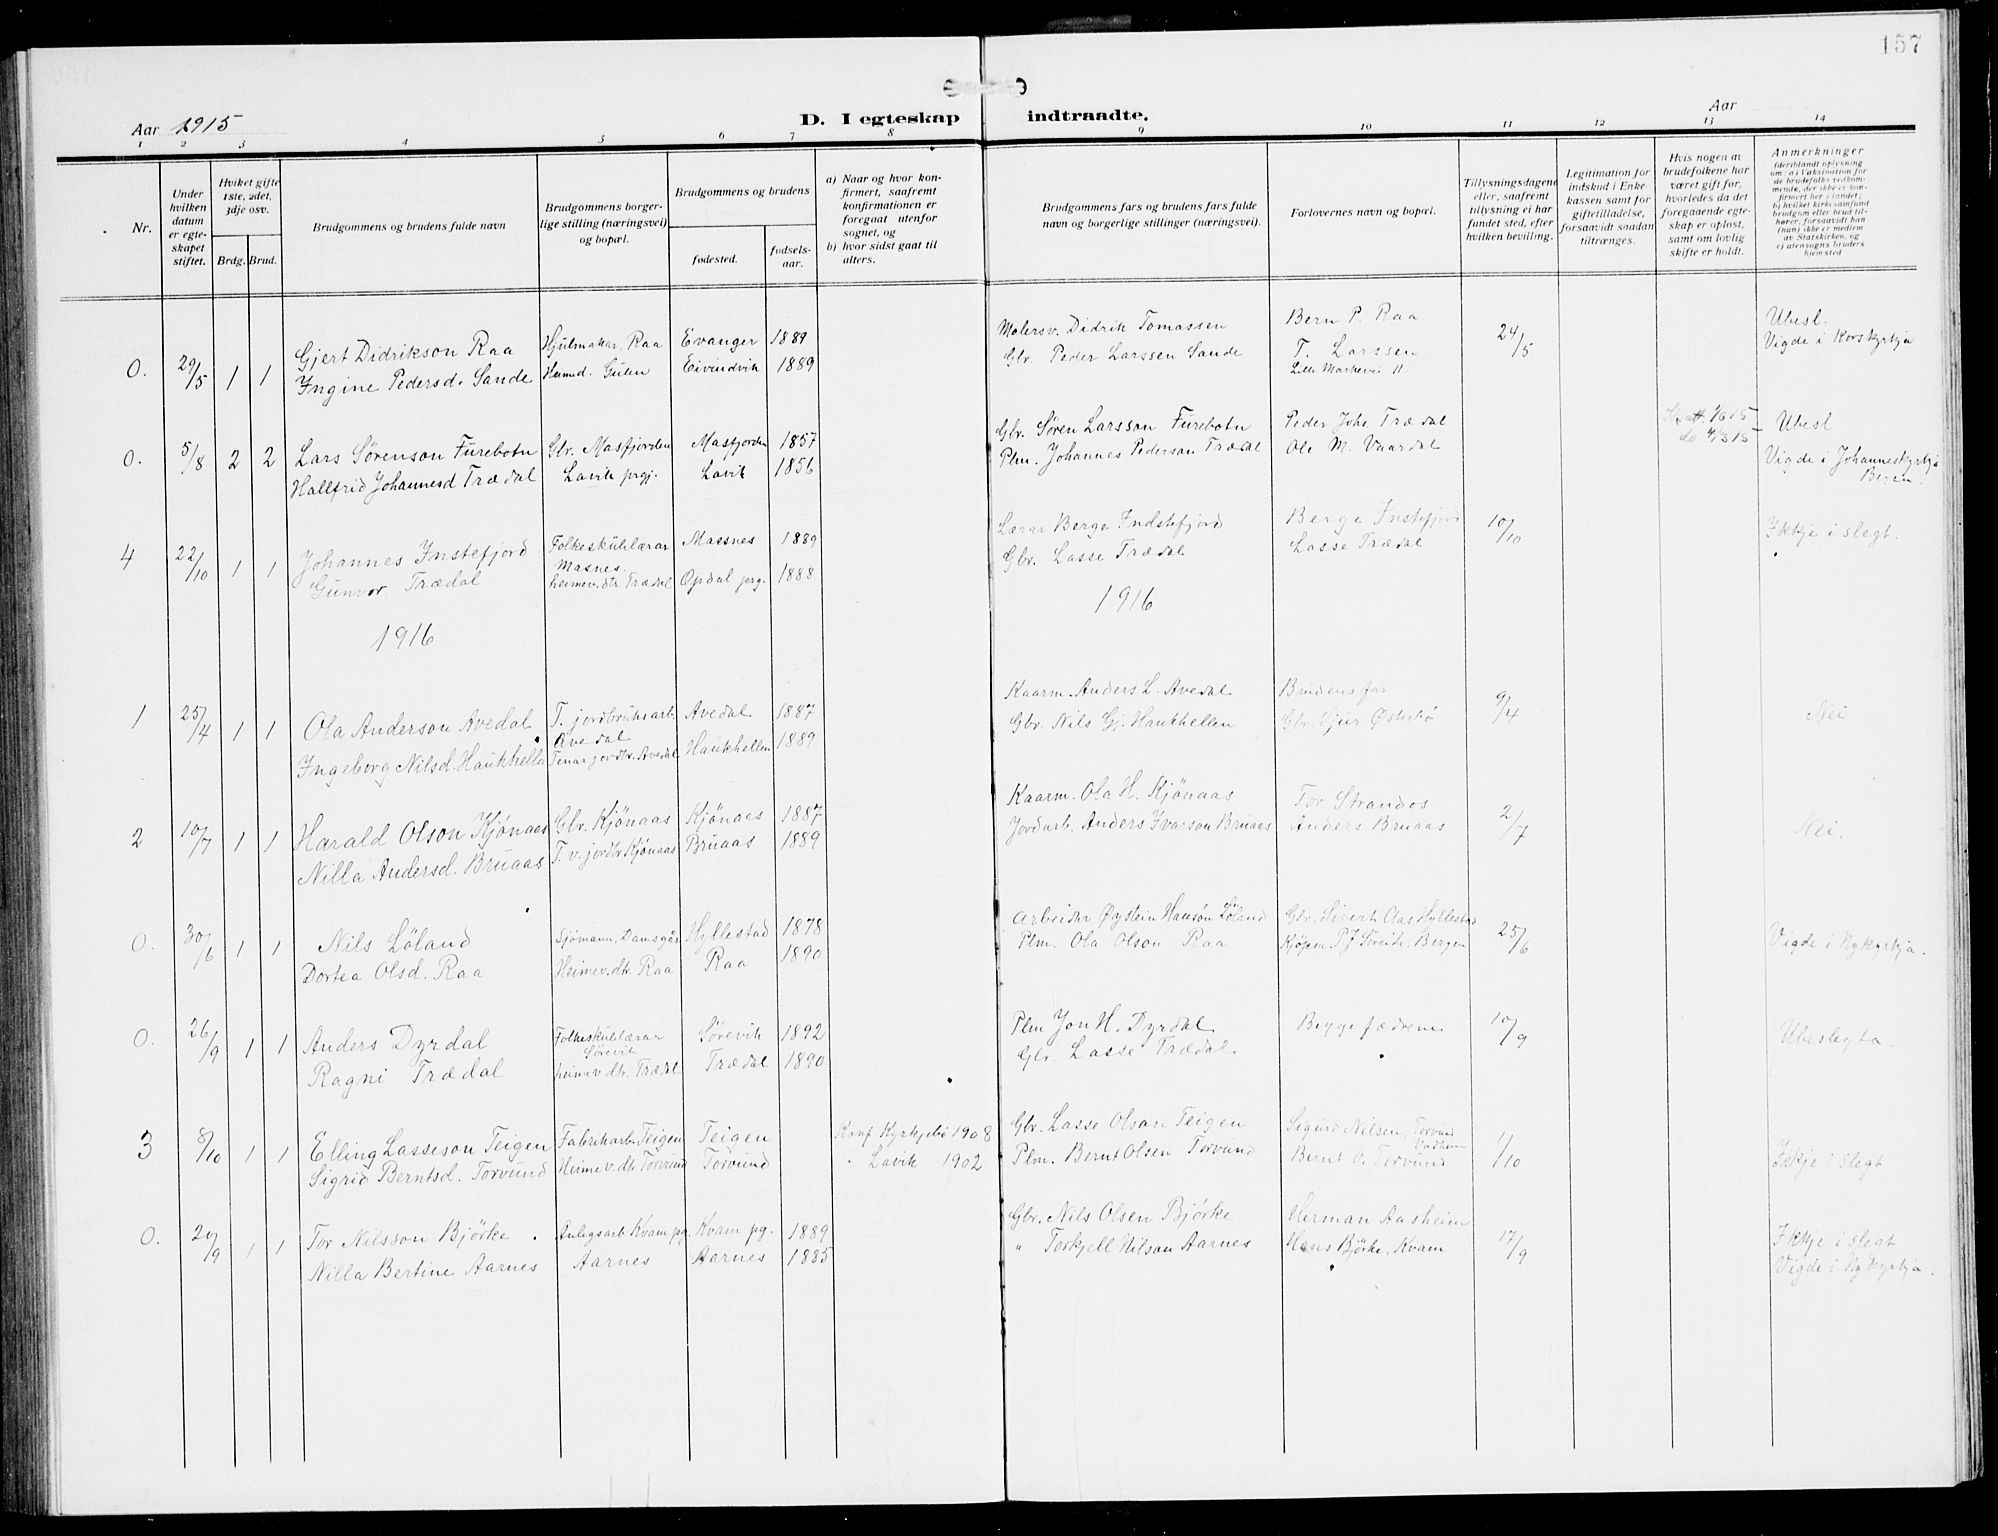 157
Aar 1915
D. I egteskap indtraadte.
Aar
1 2 3 4 5 6 7 8 9 10 11 12 13 14
Nr.
Under hvilken datum er egteskapet stiftet.
Hviket gifte 1ste, 2det, 3dje osv.
Brdg. Brud.
Brudgommens og brudens fulde navn
Brudgommens borgerlige stilling (næringsvei) og bopæl.
Brudgommens og brudens
fødested.
fødselsaar.
a) Naar og hvor konfirmert, saafremt konfirmationen er foregaat utenfor sognet, og
b) hvor sidst gaat til alters.
Brudgommens fars og brudens fars fulde navn og borgerlige stillinger (næringsvei).
Forlovernes navn og bopæl.
Tillysningsdagene eller, saafremt tillysning ei har fundet sted, efter hvilken bevilling.
Legitimation for indskud i Enkekassen samt for giftetilladelse, forsaavidt saadan tiltrænges.
Hvis nogen av brudefolkene har været gift før, hvorledes da det foregaaende egteskap er opløst, samt om lovlig skifte er holdt.
Anmerkninger (deriblandt oplysning om: a) Vaksination for de brudefolks vedkommende, der ikke er konfirmert her i landet, b) hvilket kirkesamfund brudgom eller brud tilhører, forsaavidt han (hun) ikke er medlem av Statskirken, og c) utensogns bruders hjemsted
0. 29/5 1 1 Gjert Didrikson Raa Hjulmakar, Raa Evanger 1889 Malersv. Didrik Tomassen Bern P. Raa 24/5 Ubesl.
Ingine Pedersd. Sande Heimd. Gulen Eivindvik 1889 Gbr. Peder Larssen Sande T. Larssen Vigde i Korskyrkja
Lille Markevei 11.
0. 5/8 2 2 Lars Sørenson Furebotn Gbr. Masfjorden Masfjorden 1857 Gbr. Søren Larsson Furebotn Peder Johs. Trædal Ubesl
Hallfrid Johannesd Trædal Lavik prgj. Lavik 1856 Plm. Johannes Pederson Trædal Ole M. Vaardal Vigde i Johanneskyrkja
4 22/10 1 1 Johannes Instefjord Folkeskulelærar Masnes. Maesnes 1889 Lærar Berge Indstefjord Berge Instefjord 10/10 Ikkje i slegt.
Gunvor Trædal heimev. dtr Trædal Opdal prg. 1888 Gbr. Lasse Trædal Lasse Trædal
1916 1916
1 25/4 1 1 Ola Anderson Avedal T. jordbruksarb. Avedal Avedal 1887 Kaarm. Anders L. Avedal Brudens far 9/4 Nei
Ingeborg Nilsd. Haukhella Tenar jordbr. Avedal Haukhellen 1889 Gbr. Nils Gj. Haukhellen Gbr. Gjur Østerbø
2 10/7 1 1 Harald Olson Kjønaas Gbr. Kjønaas Kjønaas 1887 Kaarm. Ola H. Kjønaas Tor Strandos 2/7 Nei.
Nilla Andersd. Bruaas T. v. jordbr Kjønaas Bruaas 1889 Jordarb. Anders Ivarson Bruaas Anders Bruaas
0. 30/6 1 1 Nils Løland Sjømann, Dansgår Hyllestad 1878 Arbeider Øystein Hansøn Løland Gbr. Sivert Aas Hyllestad 25/6 Vigde i Nykyrkja.
Dortea Olsd. Raa Heimev. dtr. Raa Raa 1890 Plm. Ola Olson Raa Kjøpm. P J Søreide, Bergen
0. 26/9 1 1 Anders Dyrdal Folkeskulelærar Sørevik Sørevik 1892 Plm Jon H. Dyrdal Begge fædrene 10/9 Ubeslegta.
Ragni Trædal heimev. dtr. Trædal Trædal 1890 Gbr. Lasse Trædal
3 8/10 1 1 Elling Lasseson Teigen Fabrikarb. Teigen Teigen Konf Kyrkjebø 1908 Gbr. Lasse Olson Teigen Sigurd Nilsen, Torvund Vadheim 1/10 Ikkje i slegt
Sigrid Berntsd. Torvund Heimev. dtr Torvund Torvund Lavik 1902 Plm. Bernt Olsen Torvund Bernt O. Torvund
0. 20/9 1 1 Tor Nilsson Bjørke Anlegsarb Kvam pg. Kvam pg. 1889 Gbr. Nils Olsen Bjørke Herman Aasheim 17/9 Ikkje i slegt
Nilla Bertine Aarnes Aarnes Aarnes 1885 " Torkjell Nilson Aarnes Hans Bjørke, Kvam Vigde i Nykyrkja.